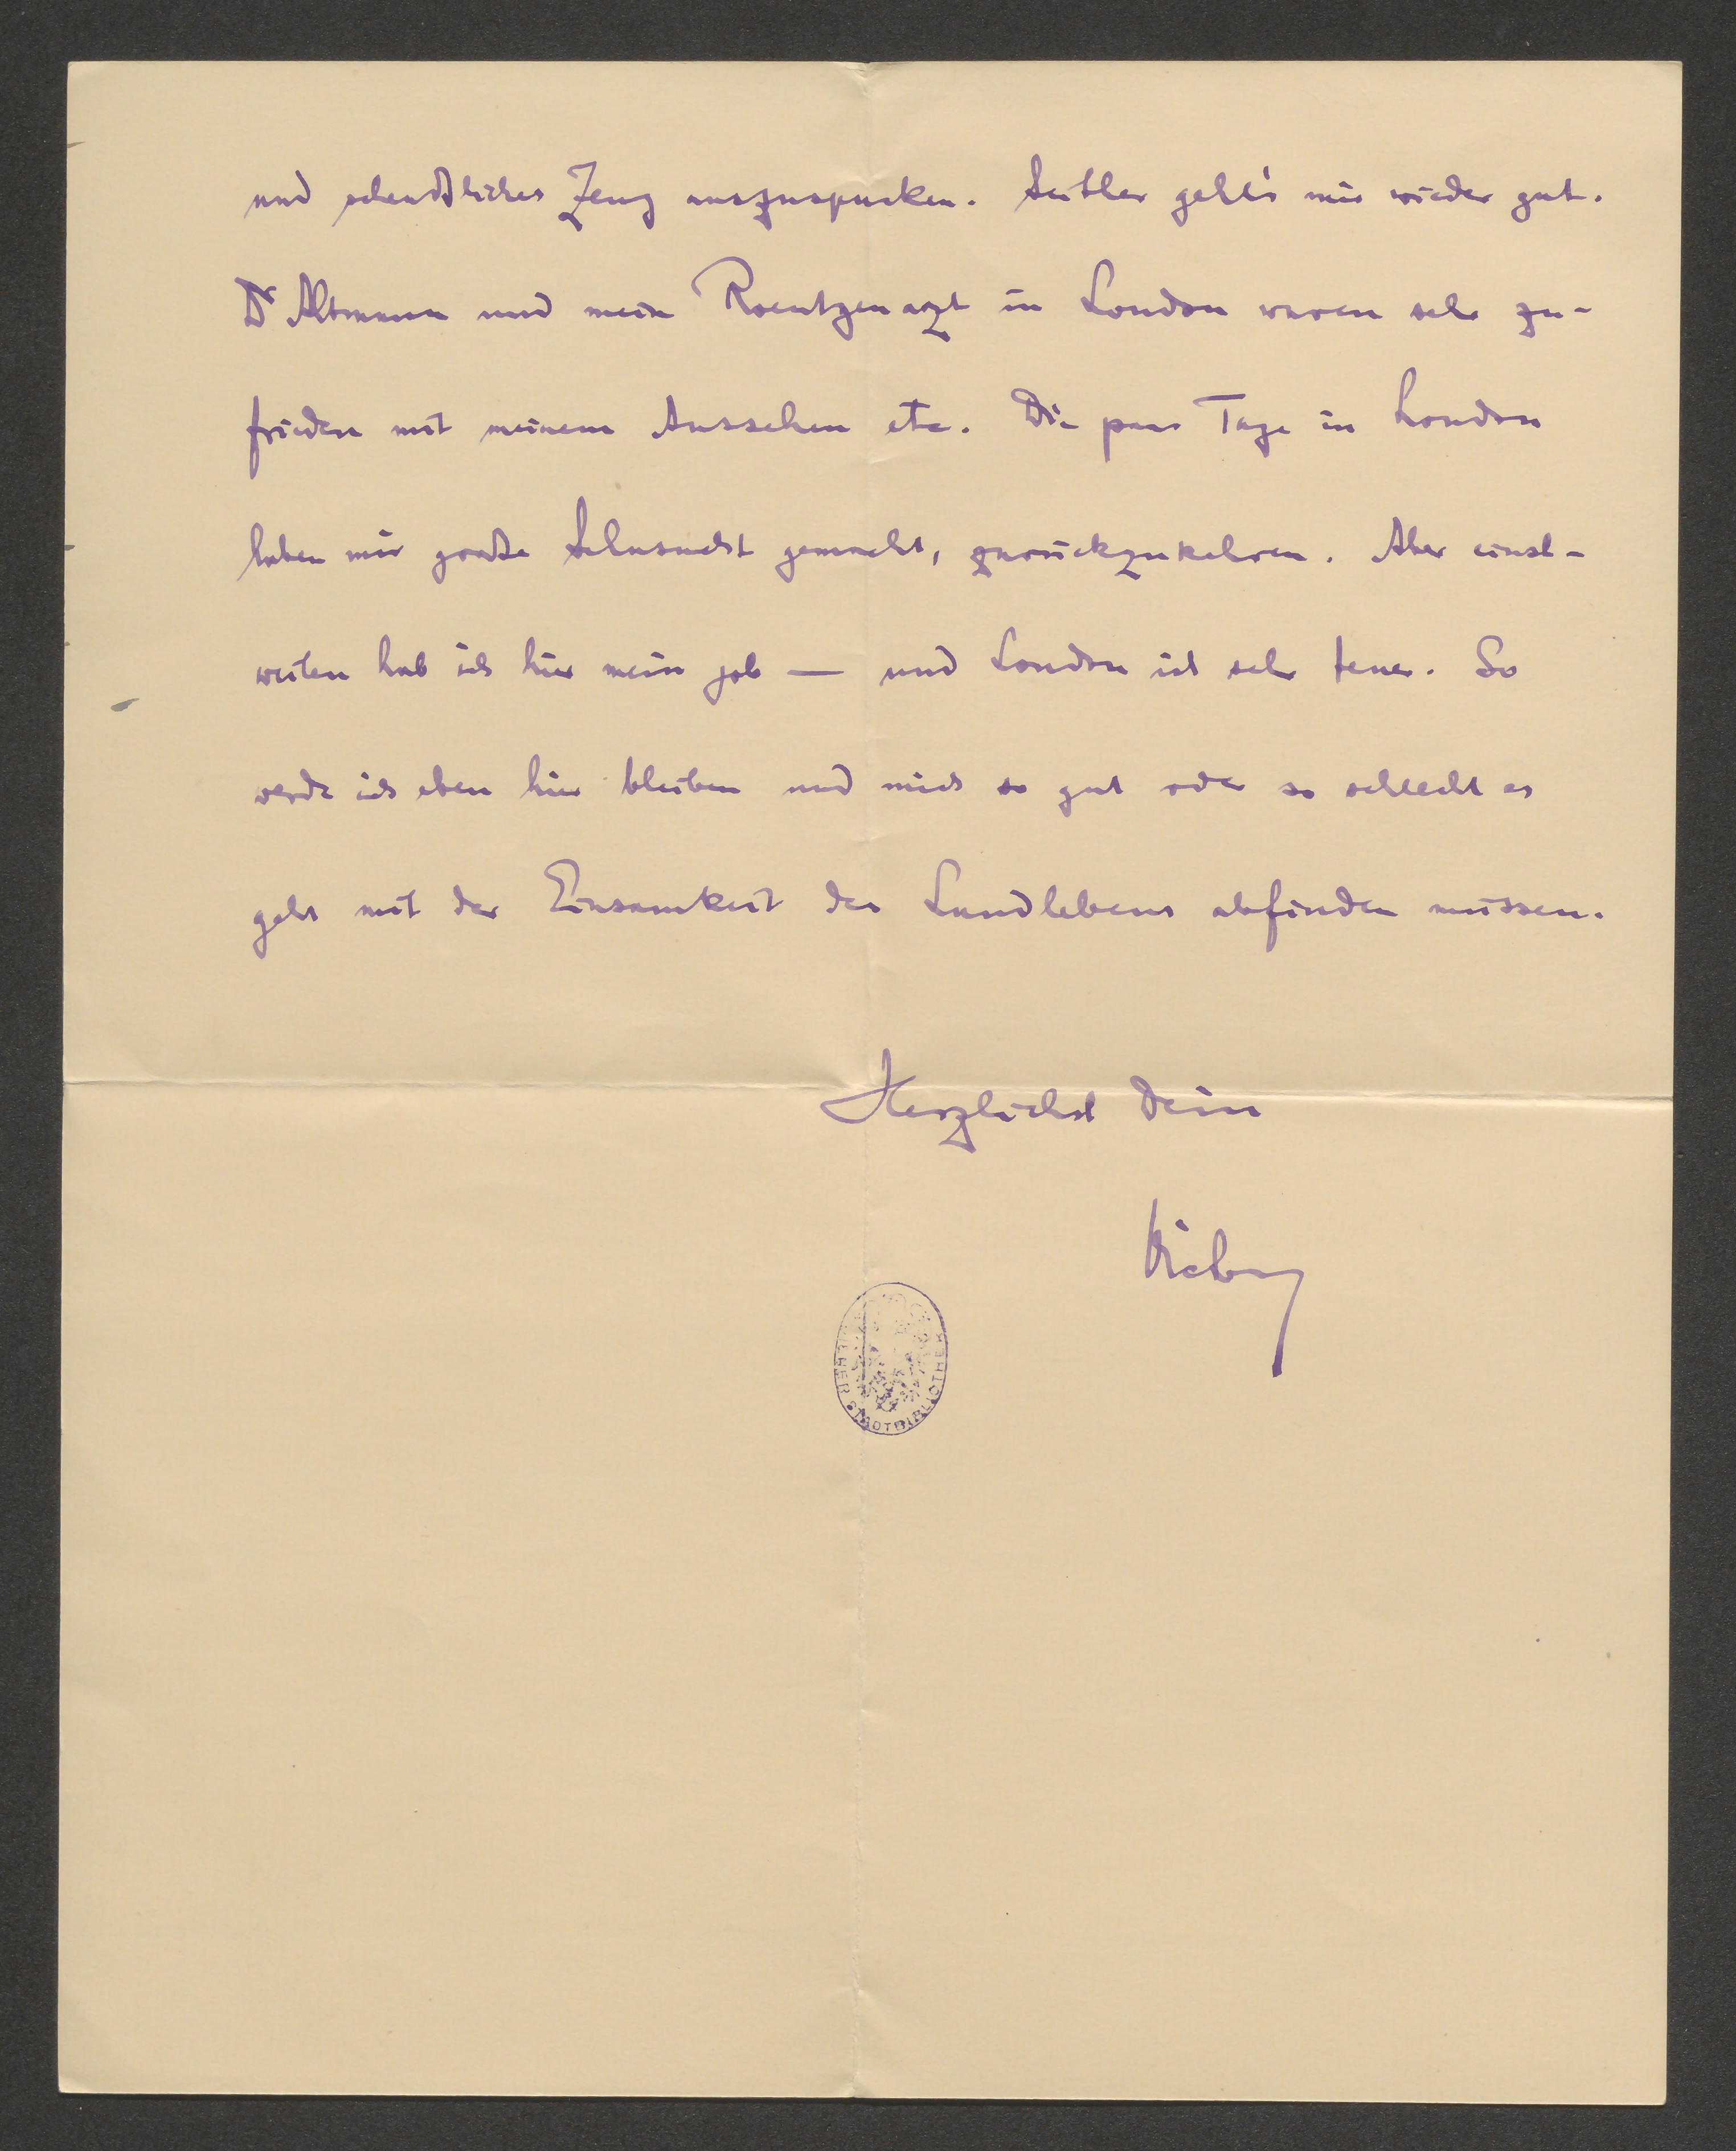 und scheußliches Zeug auszuspucken. Seither geht's mir wieder gut.
Dr Altmann und mein Roentgenarzt in London waren sehr zu-
frieden mit meinem Aussehen etc. Die paar Tage in London
haben mir große Sehnsucht gemacht, zurückzukehren. Aber einst-
weilen hab ich hier mein job — und London ist sehr teuer. So
werde ich eben hier bleiben und mich so gut oder so schlecht es
geht mit der Einsamkeit des Landlebens abfinden müssen.
Herzlichst Dein
WIENER STADTBIBLIOTHEK